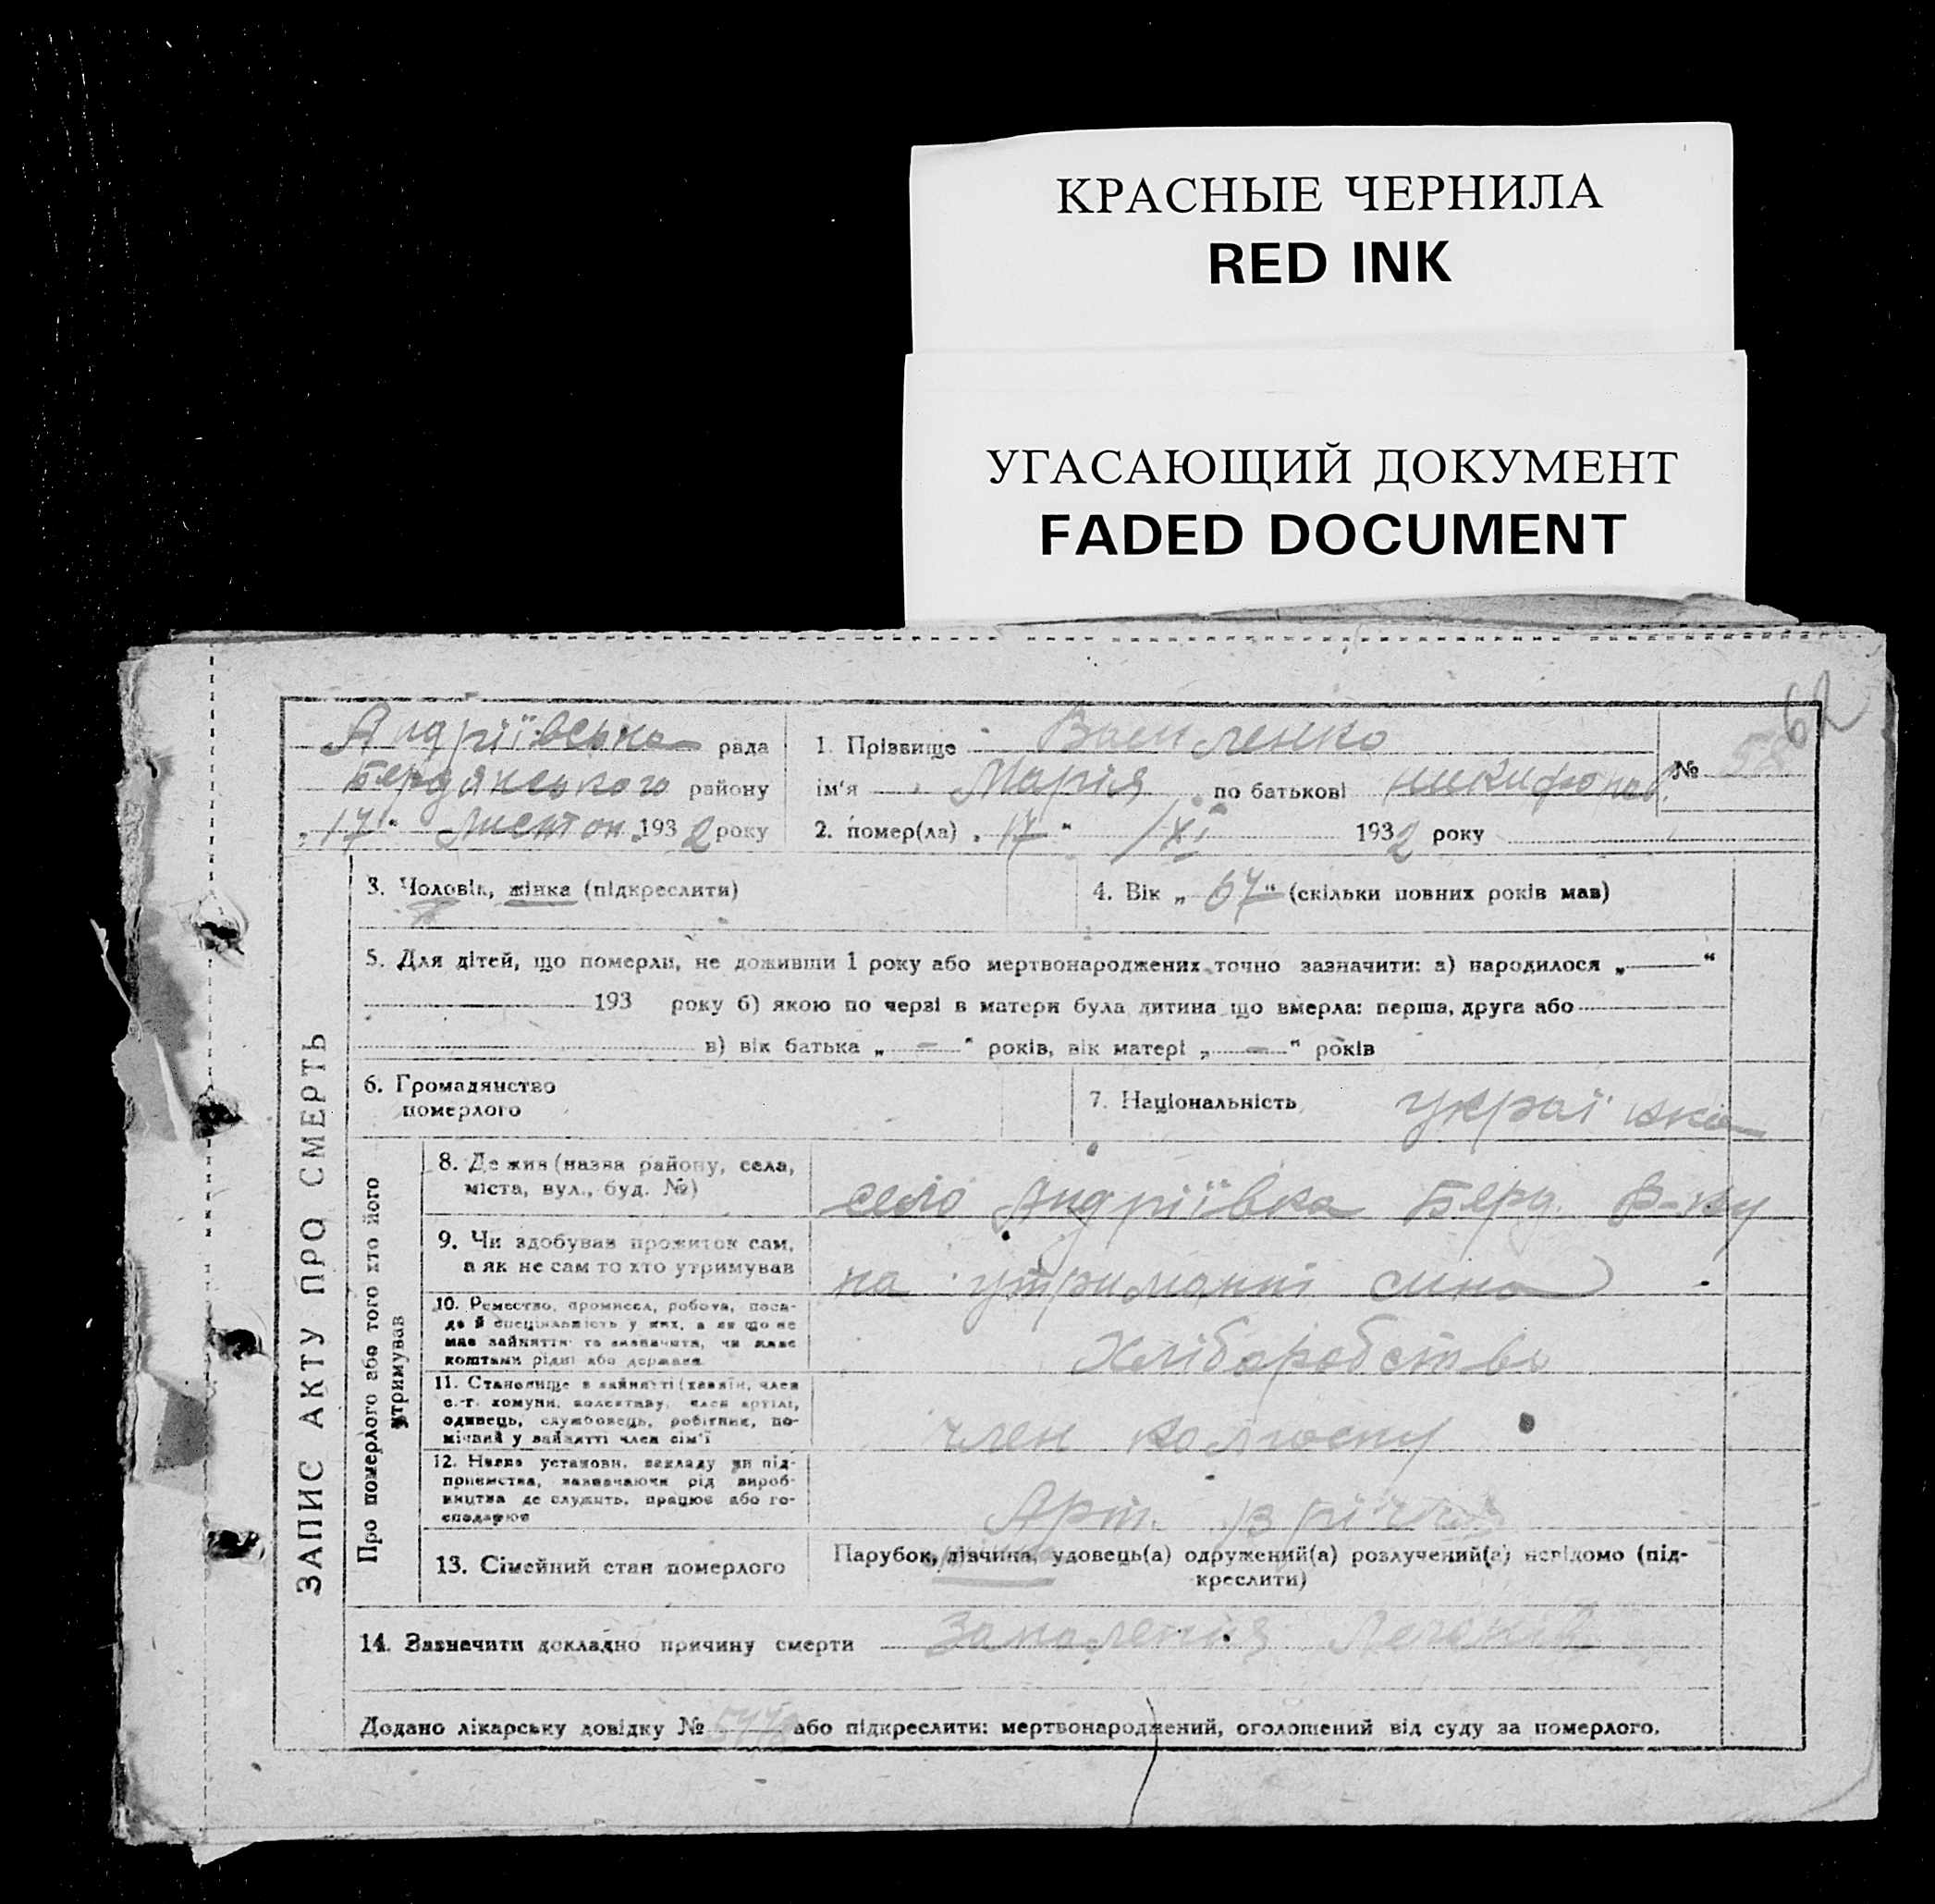 КРАСНЫЕ ЧЕРНИЛА
RED INK
УГАСАЮЩИЙ ДОКУМЕНТ
FADED DOCUMENT
62
Андріївська рада
Бердянського району
„17“ Листоп 1932 року
1. Прізвище Василенко
ім'я Марія по батькові Никифоров.
№ 58
2. помер(ла) „17“ XI 1932 року
ЗАПИС АКТУ ПРО СМЕРТЬ
3. Чоловік, жінка (підкреслити)
4. Вік „67“ (скільки повних років мав)
5. Для дітей, що померли, не доживши 1 року або мертвонароджених точно зазначити: а) народилося „—“
193 року б) якою по черзі в матери була дитина що вмерла: перша, друга або
в) вік батька „—“ років, вік матері „—“ років
6. Громадянство
померлого
7. Національність українка
Про померлого або того хто його
утримував
8. Де жив (назва району, села,
міста, вул., буд. №)
село Андріївка Берд. р-ну
9. Чи здобував прожиток сам,
а як не сам то хто утримував
на утриманні сина
10. Ремество, промисел, робота, поса-
да й спеціальність у них, а як що не
мав зайняття то зазначити, чи живе
коштами рідні або держави
Хліборобство
11. Становище в зайнятті (хазяїн, член
с.-г. комуни, колективу, член артілі,
одинець, службовець, робітник, по-
мічний у зайнятті член сім'ї
член колгоспу
12. Назва установи, закладу чи під-
приємства, зазначаючи рід вироб-
ництва де служить, працює або го-
сподарює
Арт.
13. Сімейний стан померлого
Парубок, дівчина, удовець(а) одружений(а) розлучений(а) невідомо (під-
креслити)
14. Зазначити докладно причину смерти Запалення Легенів
Додано лікарську довідку № або підкреслити: мертвонароджений, оголошений від суду за померлого.